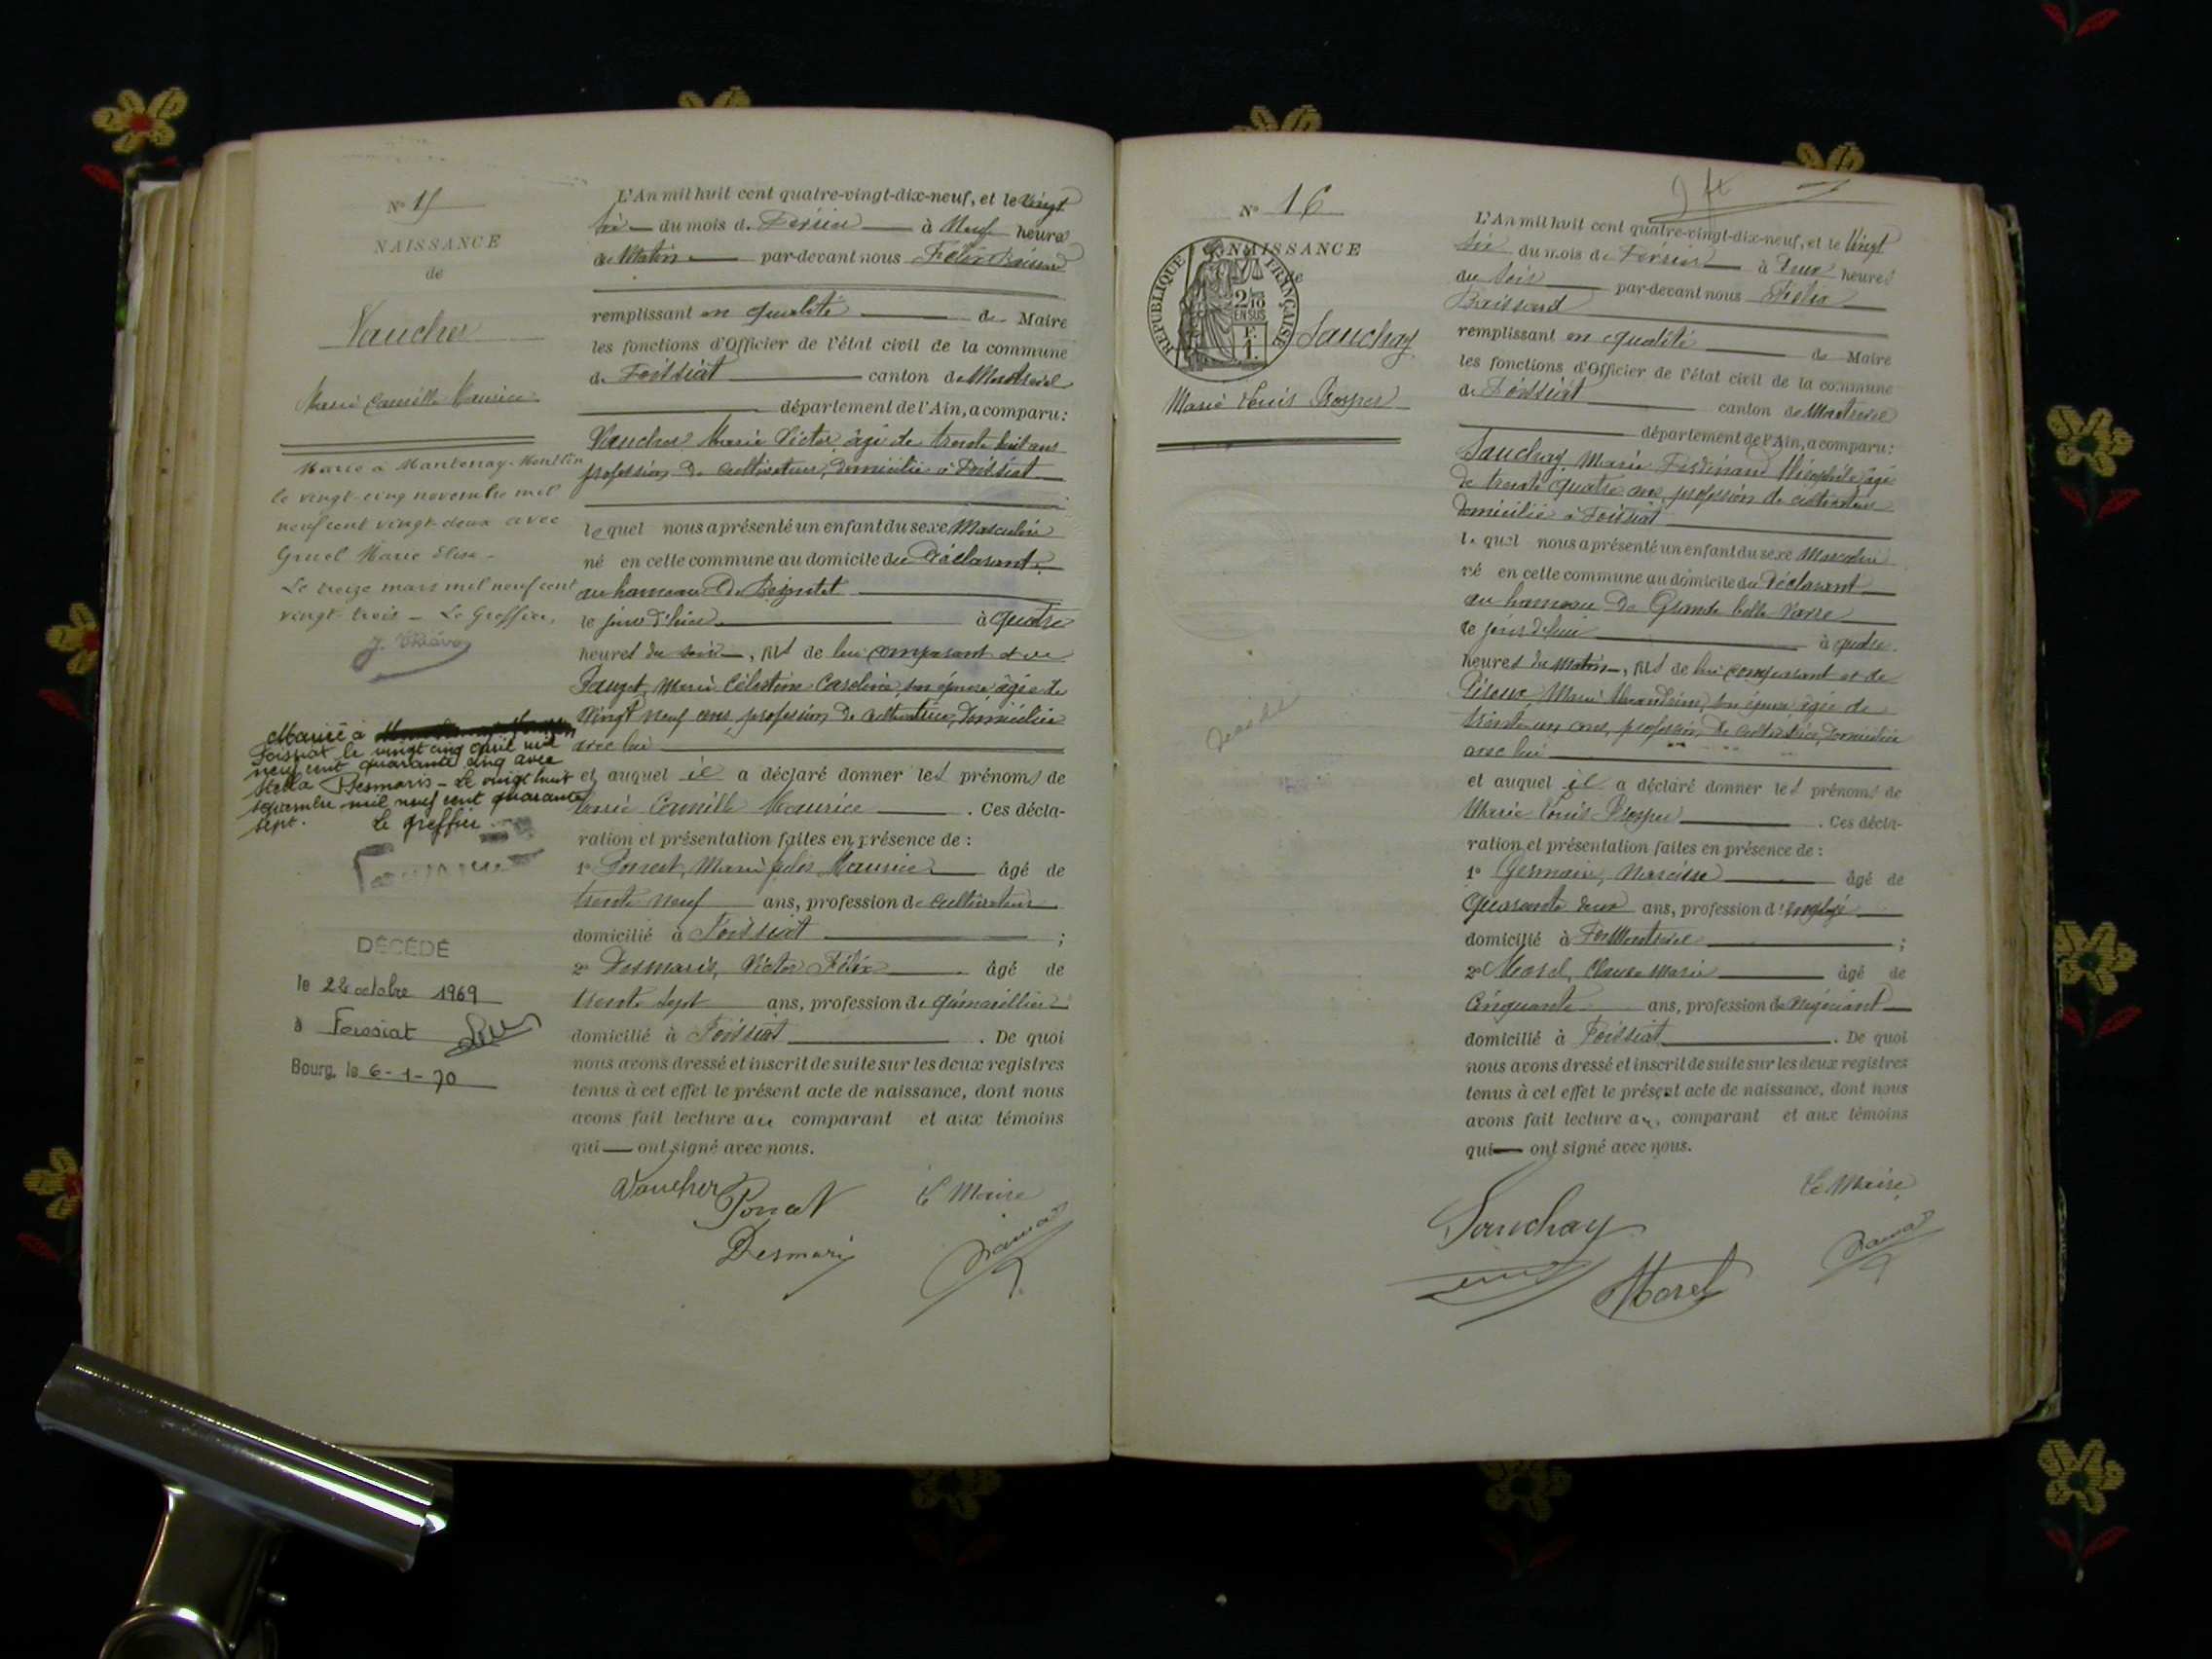 N° 15
NAISSANCE
de
Vaucher
Marie Camille Maurice
Marié à Mantenay-Montlin
le vingt-cinq novembre mil
neuf cent vingt-deux avec
Gruel Marie Elisa -
Le treize mars mil neuf cent
vingt-trois - Le Greffier,
Marié à
Foissiat le vingt cinq avril mil
neuf cent quarante cinq avec
Stella Desmaris - Le vingt huit
novembre mil neuf cent quarante
sept. Le greffier
DÉCÉDÉ
le 22 octobre 1969
à Foissiat
Bourg, le 6-1-70
L'An mil huit cent quatre-vingt-dix-neuf, et le vingt
six du mois de Février à Neuf heures
du Matin par-devant nous Félix
remplissant en qualité de Maire
les fonctions d'Officier de l'état civil de la commune
de Foissiat canton de Montrevel
département de l'Ain, a comparu:
Vaucher Marie Victor âgé de trente huit ans
profession de cultivateur, domicilié à Foissiat
lequel nous a présenté un enfant du sexe Masculin
né en cette commune au domicile du Déclarant
au hameau de
le jour d'hier à quatre
heures du soir, fils de lui comparant et de
Marie Célestine Caroline, son épouse, âgée de
vingt neuf ans, profession de cultivatrice, domiciliée
avec lui
et auquel il a déclaré donner les prénoms de
Marie Camille Maurice . Ces décla-
ration et présentation faites en présence de :
1° Poncet, Marie Jules Maurice âgé de
trente neuf ans, profession de cultivateur
domicilié à Foissiat ;
2° Desmaris, Victor Félix âgé de
trente sept ans, profession de
domicilié à Foissiat . De quoi
nous avons dressé et inscrit de suite sur les deux registres
tenus à cet effet le présent acte de naissance, dont nous
avons fait lecture au comparant et aux témoins
qui ont signé avec nous.
Vaucher Poncet Le Maire
Desmaris
N° 16
NAISSANCE
de
REPUBLIQUE FRANÇAISE
2/10
EN SUS
F.
1.
Sauchay
Marie Louis Prosper
L'An mil huit cent quatre-vingt-dix-neuf, et le vingt
six du mois de Février à Deux heures
du soir par-devant nous Félix
remplissant en qualité de Maire
les fonctions d'Officier de l'état civil de la commune
de Foissiat canton de Montrevel
département de l'Ain, a comparu:
Sauchay, Marie Ferdinand Théophile âgé
de trente quatre ans, profession de cultivateur
domicilié à Foissiat
lequel nous a présenté un enfant du sexe Masculin
né en cette commune au domicile du Déclarant
au hameau de Grande
le jour d'hui à quatre
heures du Matin, fils de lui comparant et de
Marie son épouse âgée de
trente un ans, profession de cultivatrice, domiciliée
avec lui
et auquel il a déclaré donner les prénoms de
Marie Louis Prosper . Ces décla-
ration et présentation faites en présence de :
1° Germain, Narcisse âgé de
Quarante deux ans, profession d'Employé
domicilié à Montrevel ;
2° Morel, Claude Marie âgé de
Cinquante ans, profession de Négociant
domicilié à Foissiat . De quoi
nous avons dressé et inscrit de suite sur les deux registres
tenus à cet effet le présent acte de naissance, dont nous
avons fait lecture au comparant et aux témoins
qui ont signé avec nous.
Le Maire
Sauchay
Morel